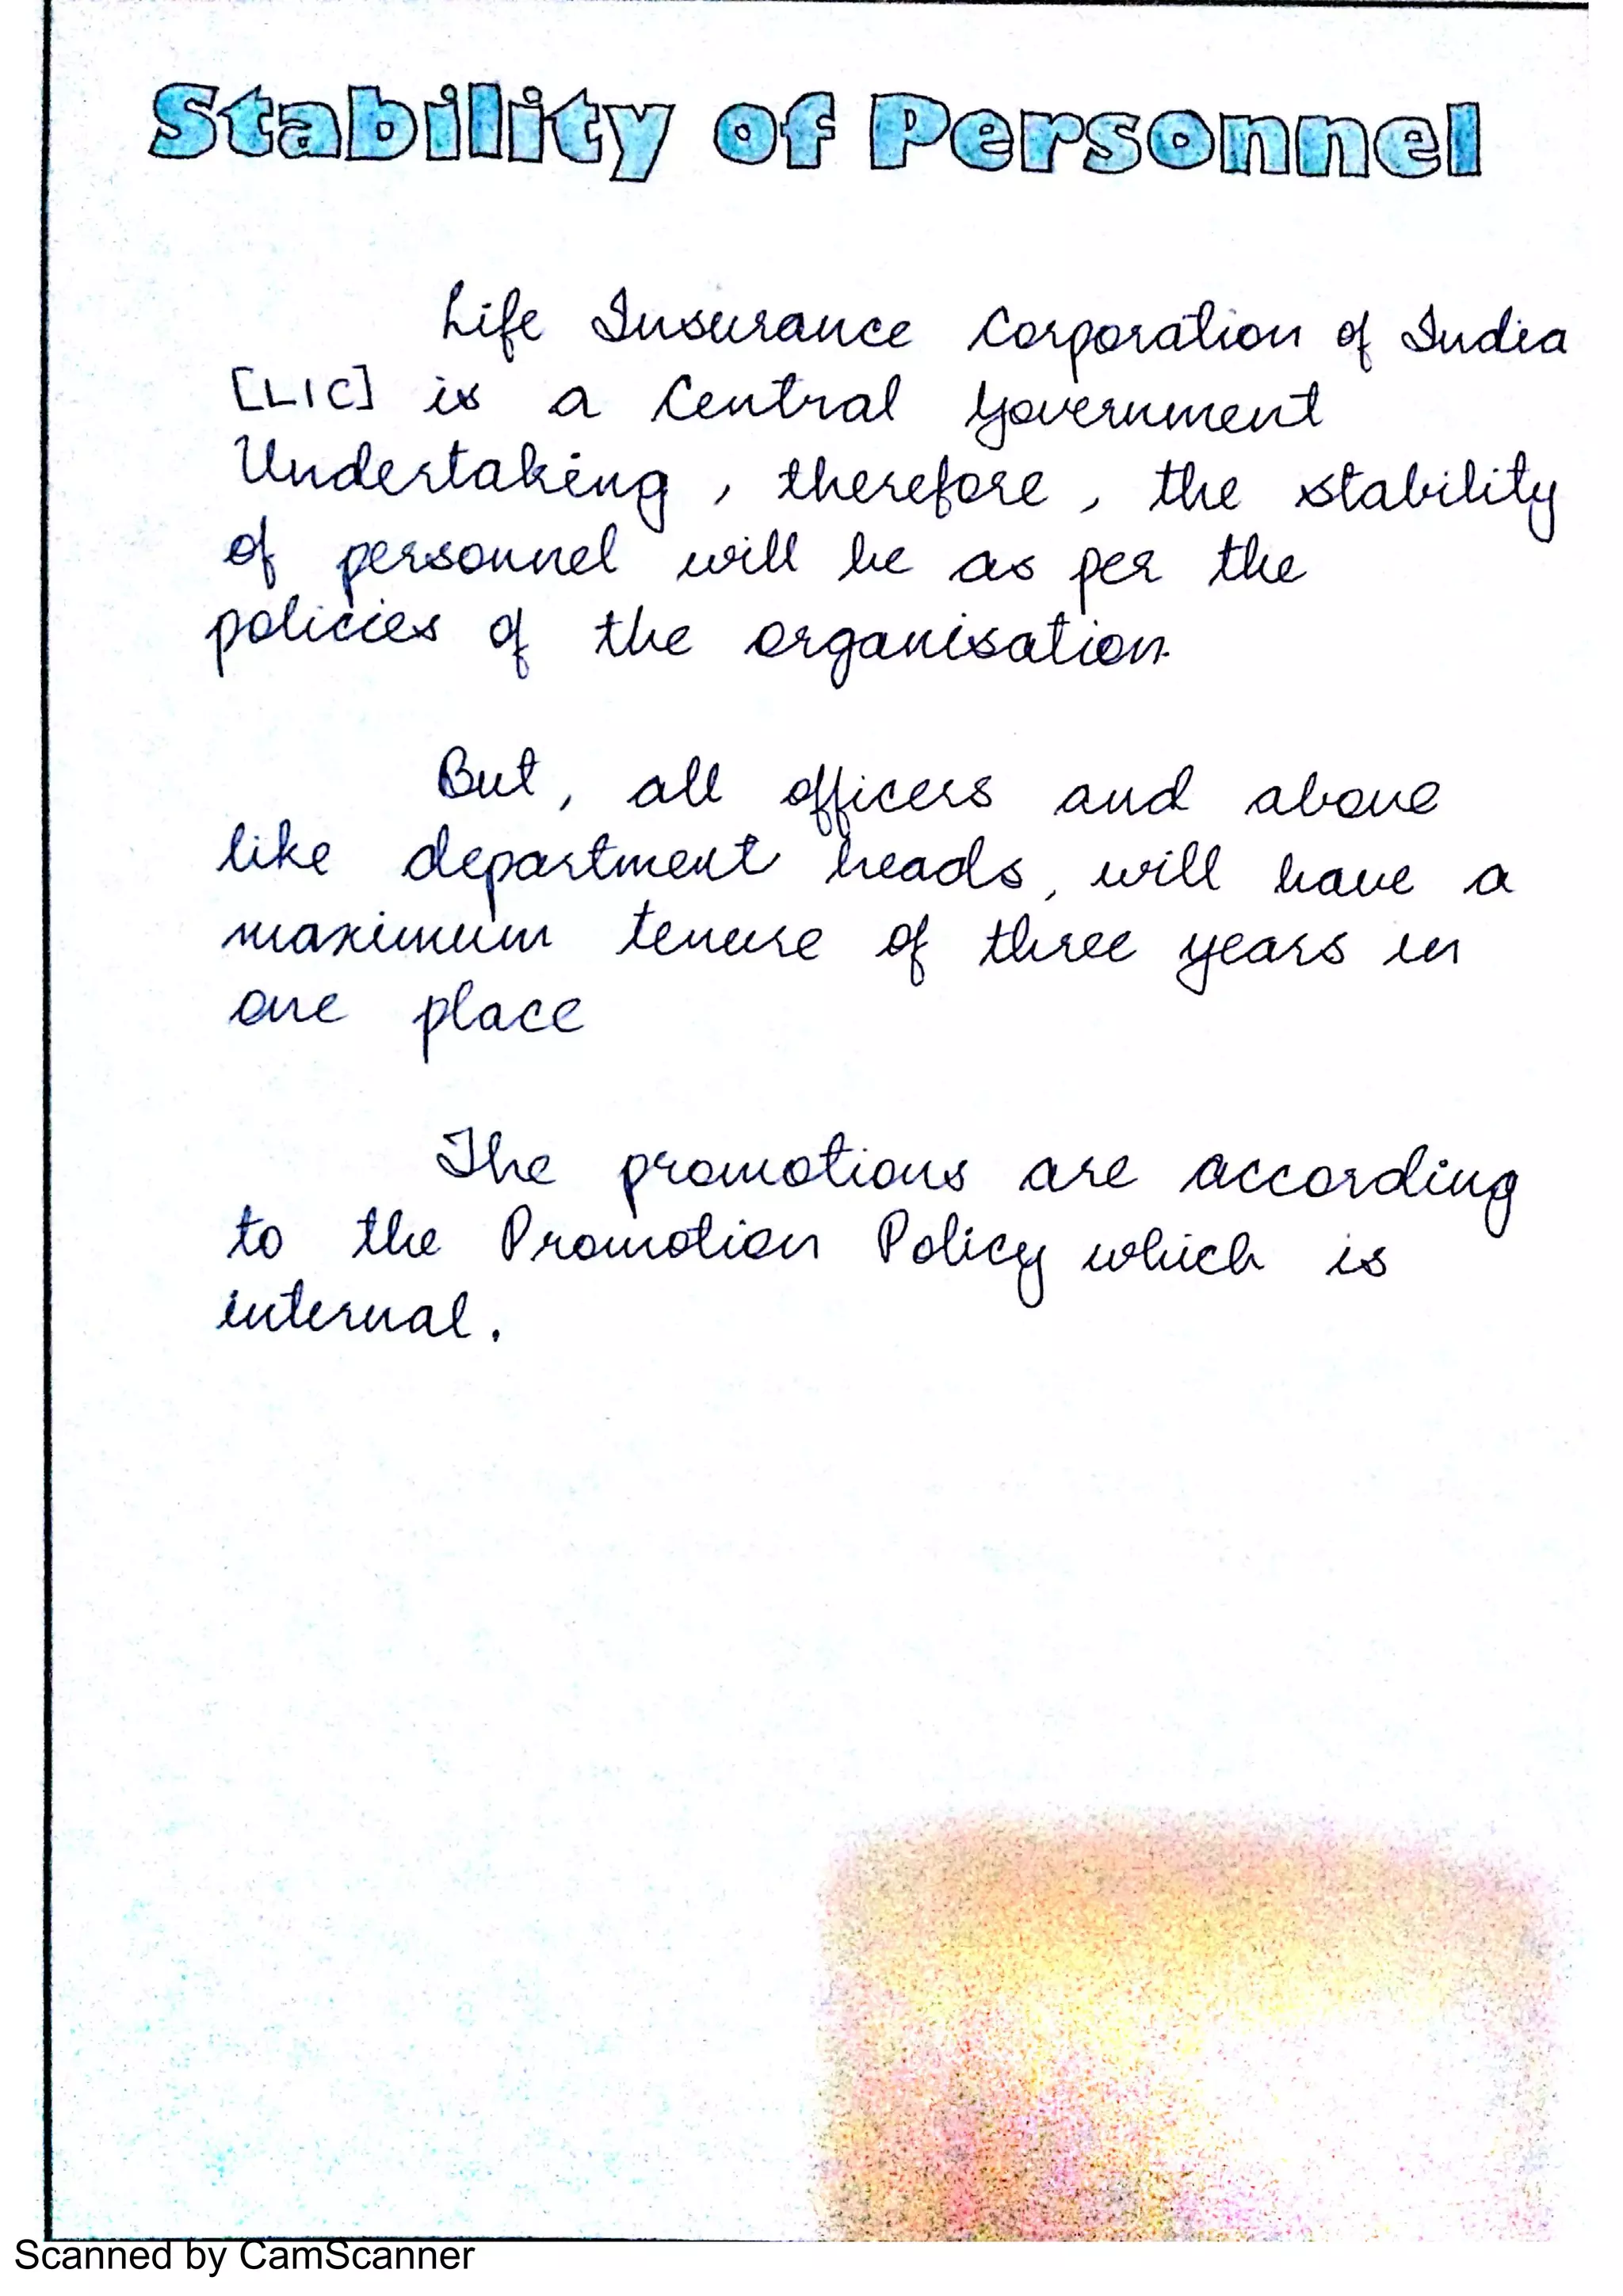 Stability of Personnel
Life Insurance Corporation of India
[LIC] is a Central Government
Undertaking, therefore, the stability
of personnel will be as per the
policies of the organisation.
But, all officers and above
like department heads, will have a
maximum tenure of three years in
one place
The promotions are according
to the Promotion Policy which is
internal.
Scanned by CamScanner